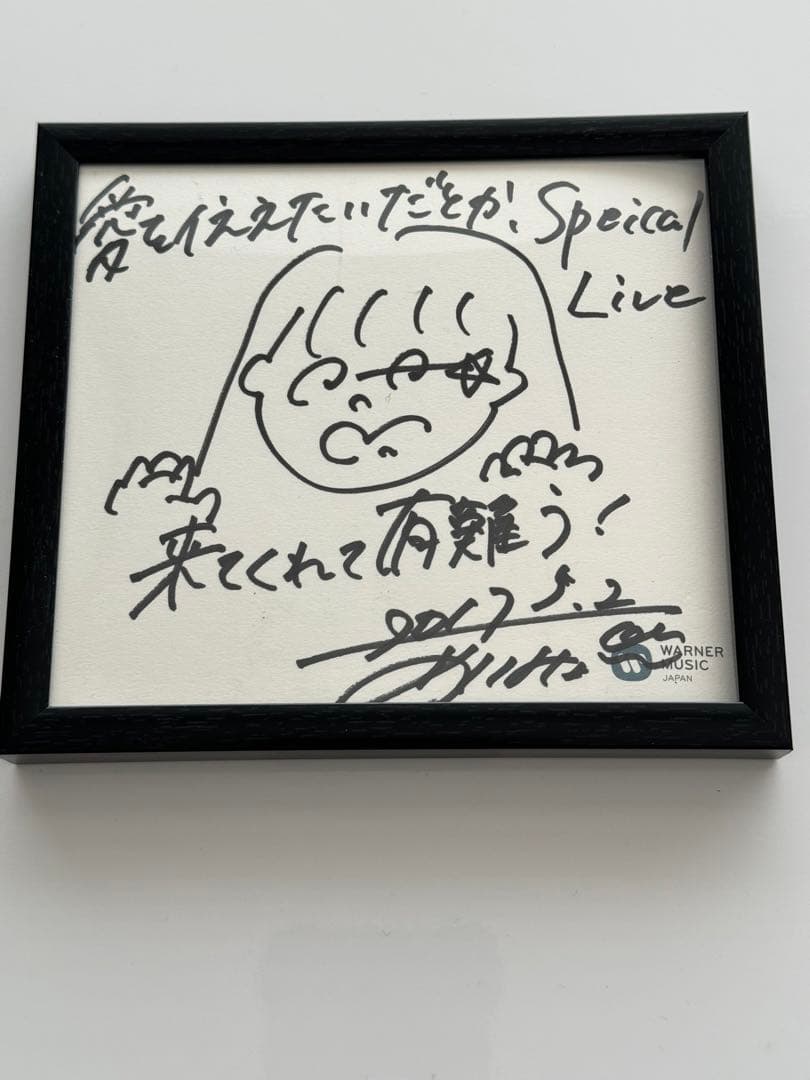 愛を伝えたいだとか、Speical
Live
来てくれて有難う!
2017 5.2
あいみょん
WARNER
MUSIC
JAPAN